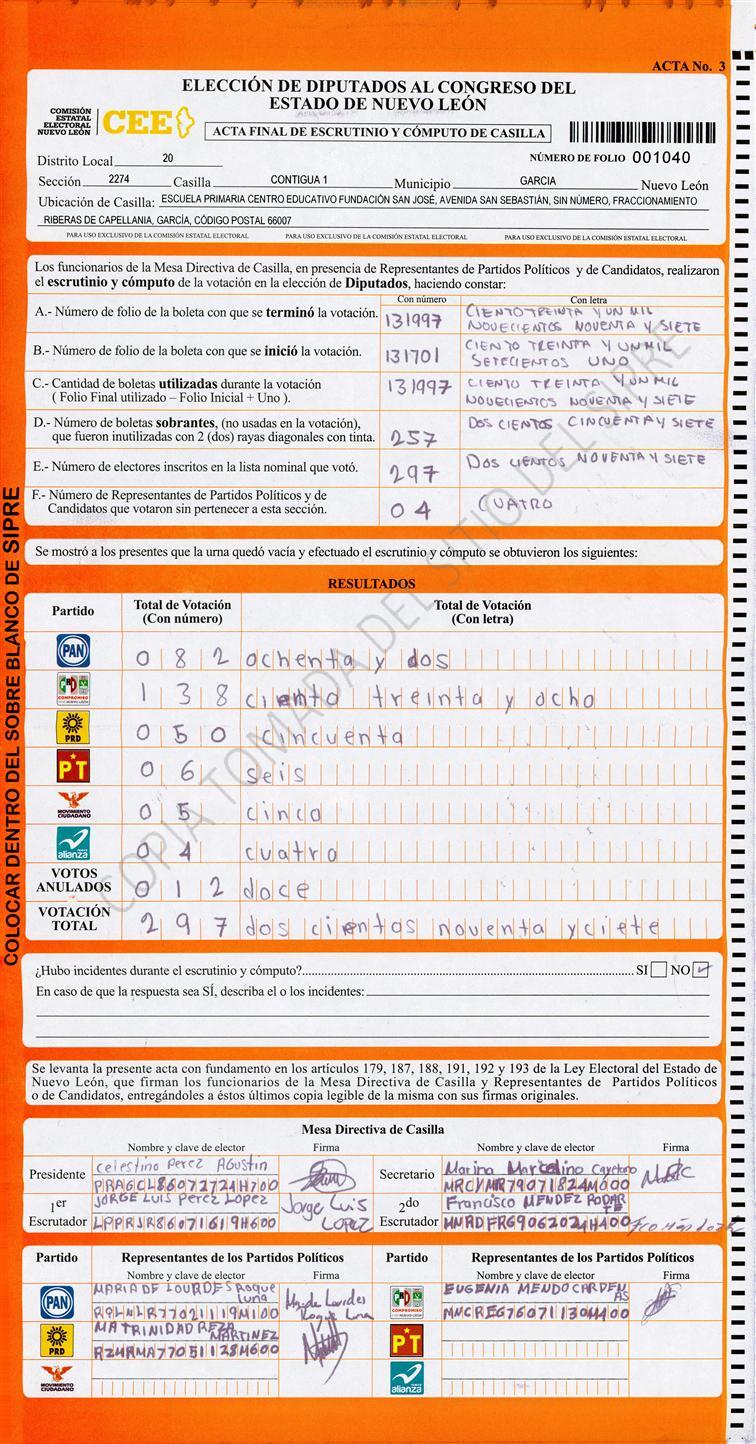 ACTA No. 3
ELECCIÓN DE DIPUTADOS AL CONGRESO DEL
ESTADO DE NUEVO LEÓN
COMISIÓN
ESTATAL
ELECTORAL
NUEVO LEÓN
CEE
ACTA FINAL DE ESCRUTINIO Y CÓMPUTO DE CASILLA
Distrito Local 20
NÚMERO DE FOLIO 001040
Sección 2274 Casilla CONTIGUA 1 Municipio GARCIA Nuevo León
Ubicación de Casilla: ESCUELA PRIMARIA CENTRO EDUCATIVO FUNDACIÓN SAN JOSÉ, AVENIDA SAN SEBASTIÁN, SIN NÚMERO, FRACCIONAMIENTO
RIBERAS DE CAPELLANIA, GARCÍA, CÓDIGO POSTAL 66007
PARA USO EXCLUSIVO DE LA COMISIÓN ESTATAL ELECTORAL PARA USO EXCLUSIVO DE LA COMISIÓN ESTATAL ELECTORAL PARA USO EXCLUSIVO DE LA COMISIÓN ESTATAL ELECTORAL
Los funcionarios de la Mesa Directiva de Casilla, en presencia de Representantes de Partidos Políticos y de Candidatos, realizaron
el escrutinio y cómputo de la votación en la elección de Diputados, haciendo constar:
Con número Con letra
A.- Número de folio de la boleta con que se terminó la votación. 131997 CIENTO TREINTA Y UN MIL
NOVECIENTOS NOVENTA Y SIETE
B.- Número de folio de la boleta con que se inició la votación. 131701 CIENTO TREINTA Y UN MIL
SETECIENTOS UNO
C.- Cantidad de boletas utilizadas durante la votación 131997 CIENTO TREINTA Y UN MIL
( Folio Final utilizado – Folio Inicial + Uno ). NOVECIENTOS NOVENTA Y SIETE
D.- Número de boletas sobrantes, (no usadas en la votación), DOS CIENTOS CINCUENTA Y SIETE
que fueron inutilizadas con 2 (dos) rayas diagonales con tinta. 257
E.- Número de electores inscritos en la lista nominal que votó. 297 DOS CIENTOS NOVENTA Y SIETE
F.- Número de Representantes de Partidos Políticos y de
Candidatos que votaron sin pertenecer a esta sección. 04 CUATRO
Se mostró a los presentes que la urna quedó vacía y efectuado el escrutinio y cómputo se obtuvieron los siguientes:
RESULTADOS
Partido Total de Votación Total de Votación
(Con número) (Con letra)
PAN 082 ochenta y dos
PRD COMPROMISO 138 ciento treinta y ocho
PRD 050 cincuenta
PT 06 seis
MOVIMIENTO CIUDADANO 05 cinco
alianza 04 cuatro
VOTOS ANULADOS 012 doce
VOTACIÓN TOTAL 297 dos cientos noventa y ciete
¿Hubo incidentes durante el escrutinio y cómputo? SI NO ✓
En caso de que la respuesta sea SÍ, describa el o los incidentes:
Se levanta la presente acta con fundamento en los artículos 179, 187, 188, 191, 192 y 193 de la Ley Electoral del Estado de
Nuevo León, que firman los funcionarios de la Mesa Directiva de Casilla y Representantes de Partidos Políticos
o de Candidatos, entregándoles a éstos últimos copia legible de la misma con sus firmas originales.
Mesa Directiva de Casilla
Nombre y clave de elector Firma Nombre y clave de elector Firma
Presidente Celestino Perez Agustin
PRAGCL86072724H700
Secretario Marina Marcelino Cayetano
MRCYMR79071824M600
1er Escrutador JORGE LUIS Perez LOPEZ
LPPRJR86071619H600
Jorge Luis
LOPEZ
2do Escrutador Francisco MENDEZ RODARTE
MNRDFR69062024H400
Partido Representantes de los Partidos Políticos Partido Representantes de los Partidos Políticos
Nombre y clave de elector Firma Nombre y clave de elector Firma
PAN MARIA DE LOURDES Roque
Luna
RQLNLR77021119M100
Ma de Lourdes
Roque Luna
EUGENIA MENDO CARDENAS
MNCREG76071130M400
PRD MA TRINIDAD REZA
MARTINEZ
RZMRMA77051128M600
PT
MOVIMIENTO CIUDADANO
alianza
COLOCAR DENTRO DEL SOBRE BLANCO DE SIPRE
COPIA TOMADA DEL SITIO DEL SIPRE